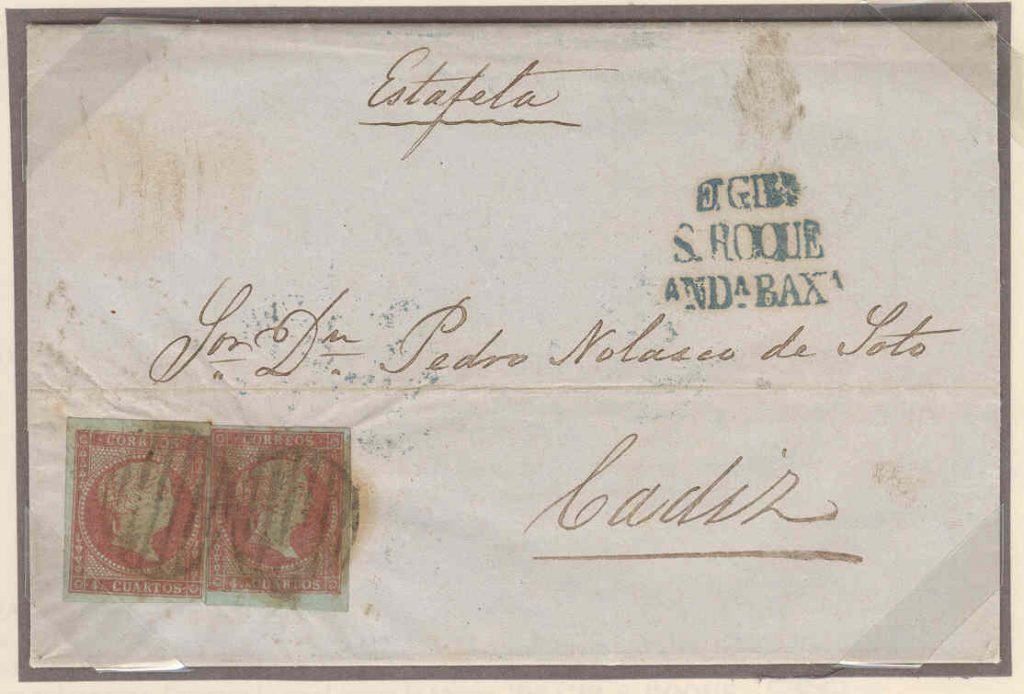 Estafeta
S. ROQUE
ANDA BAXA
Sor. Dn. Pedro Nolasco de Soto
Cadiz
CORREOS CORREOS
4 CUARTOS 4 CUARTOS